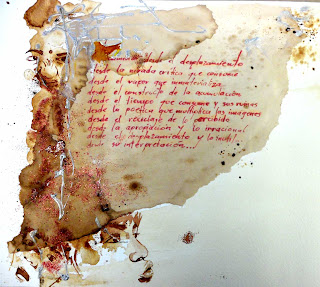 desde el desplazamiento
desde la mirada crítica que consume
desde el vapor que inmaterializa
desde el constructo de la acumulación
desde el tiempo que consume y sus ruinas
desde la poética que multiplica las imágenes
desde el reciclaje de lo percibido
desde la apropiación y lo irracional
desde el emplazamiento y lo
desde su interpretación...